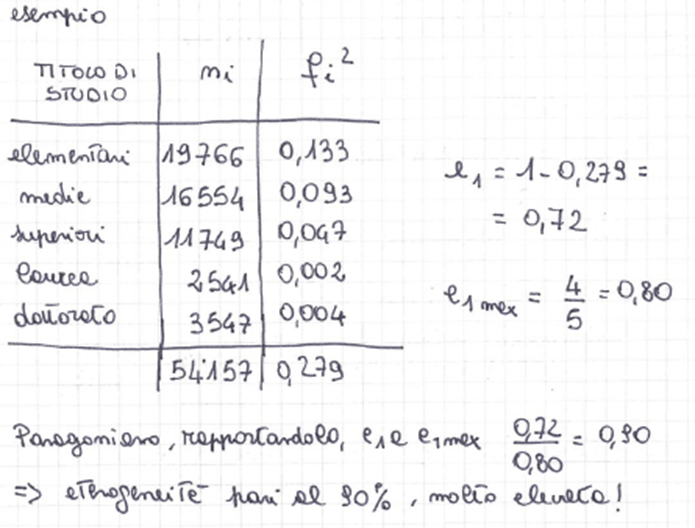 esempio
TITOLO DI STUDIO ni fi²
elementari 19766 0,133
medie 16554 0,093
superiori 11749 0,047
laurea 2541 0,002
dottorato 3547 0,004
54157 0,279
e1 = 1 - 0,279 =
= 0,72
e1 max = 4/5 = 0,80
Paragoniamo, rapportandolo, e1 a e1max 0,72/0,80 = 0,90
=> eterogeneità pari al 90%, molto elevata!